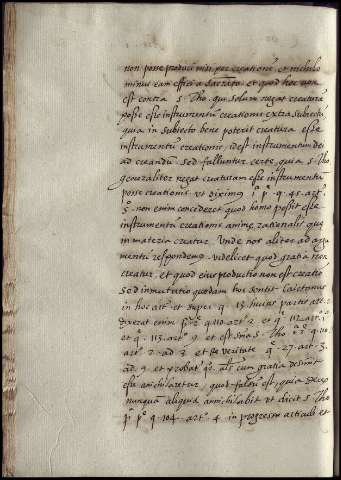 non posse produci nisi per creationē. et nichilo
minus eam effici a Sacrāto. et quod hoc non
est contra S. Tho. qui solum negat creaturā
posse esse instrumentū creationis extra subiectū
quia in subiecto bene poterit creatura esse
instrumentū creationis, idest instrumentum deo
ad creandū. sed falluntur certe, quia S. Tho
generaliter negat creaturam esse instrumentū
posse creationis vt diximus 1ª. p. q. 45. artº.
5º. non enim concederet quod homo possit esse
instrumentū creationis anime rationalis que
in materia creatur. Unde nos aliter ad argu
mentū respondemus. videlicet quod gratia non
creatur, et quod eius productio non est creatio
sed inmutatio quedam. hoc sentit Caietanus
in hoc artº. et super q. 13. huius partis artº. 2.
dixerat enim q. 110. artº. 2. et q. 112. artº.
et q. 113. artº. 9. et est sᵃ S. Tho q. 110.
artº 2. ad 3. et de veritate q. 27. artº. 3.
ad 9. et probat cum gratia desinit
esse anichilaretur. quod falsū est, quia Deus
nunquā aliquid annichilabit vt dicit S. Tho
1ª pª q. 104. artº. 4. in progressu articuli et